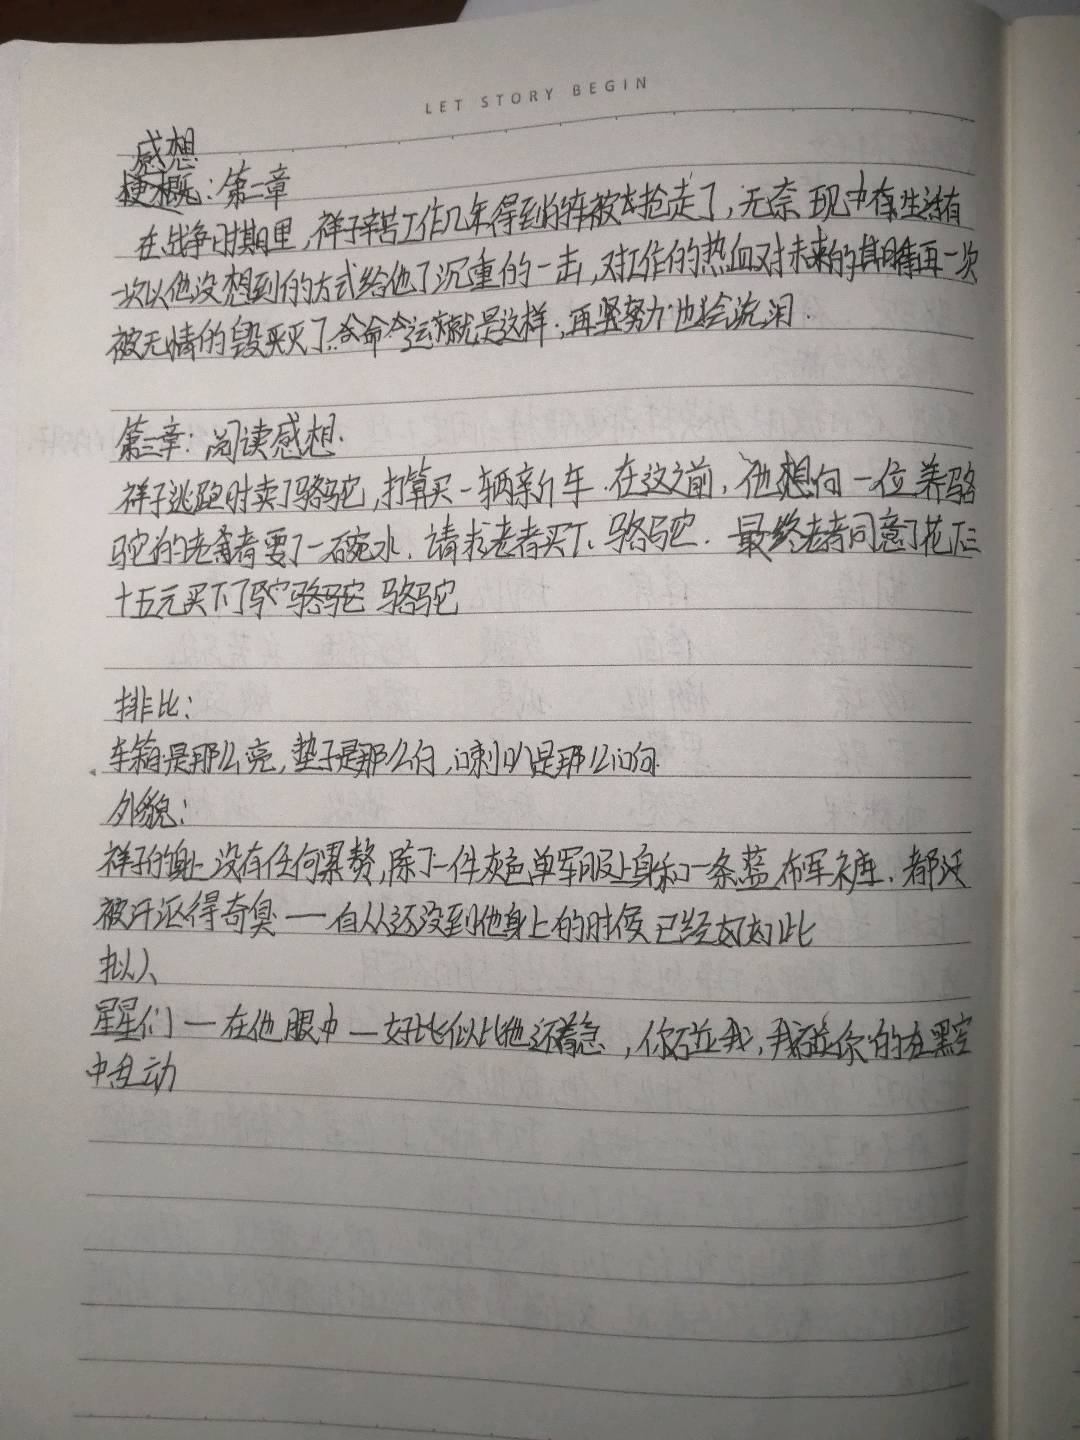 LET STORY BEGIN
感想
梗概:第二章
在战争时期里,祥子辛苦工作几年得到的车被抢走了,无奈 现 生活有
一次以他没想到的方式给他了沉重的一击,对工作的热血对未来的 再一次
被无情的毁灭了. 命 运 就是这样,再坚努力也会流泪.
第三章:阅读感想.
祥子逃跑时卖了骆驼,打算买一辆新车.在这之前,他想向一位养骆
驼的老者要了一碗水,请求老者买下骆驼. 最终老者同意了花下三
十五元买下了 骆驼 骆驼
排比:
车箱是那么亮,垫子是那么白,喇叭是那么响.
外貌:
祥子的身上没有任何累赘,除了一件灰色单军服上身和一条蓝布军裤.都还
被汗沤得奇臭——自从还没到他身上的时候已经如此
拟人
星星们—在他眼中—好 似比他还着急,你碰我,我碰你的在黑空
中 动